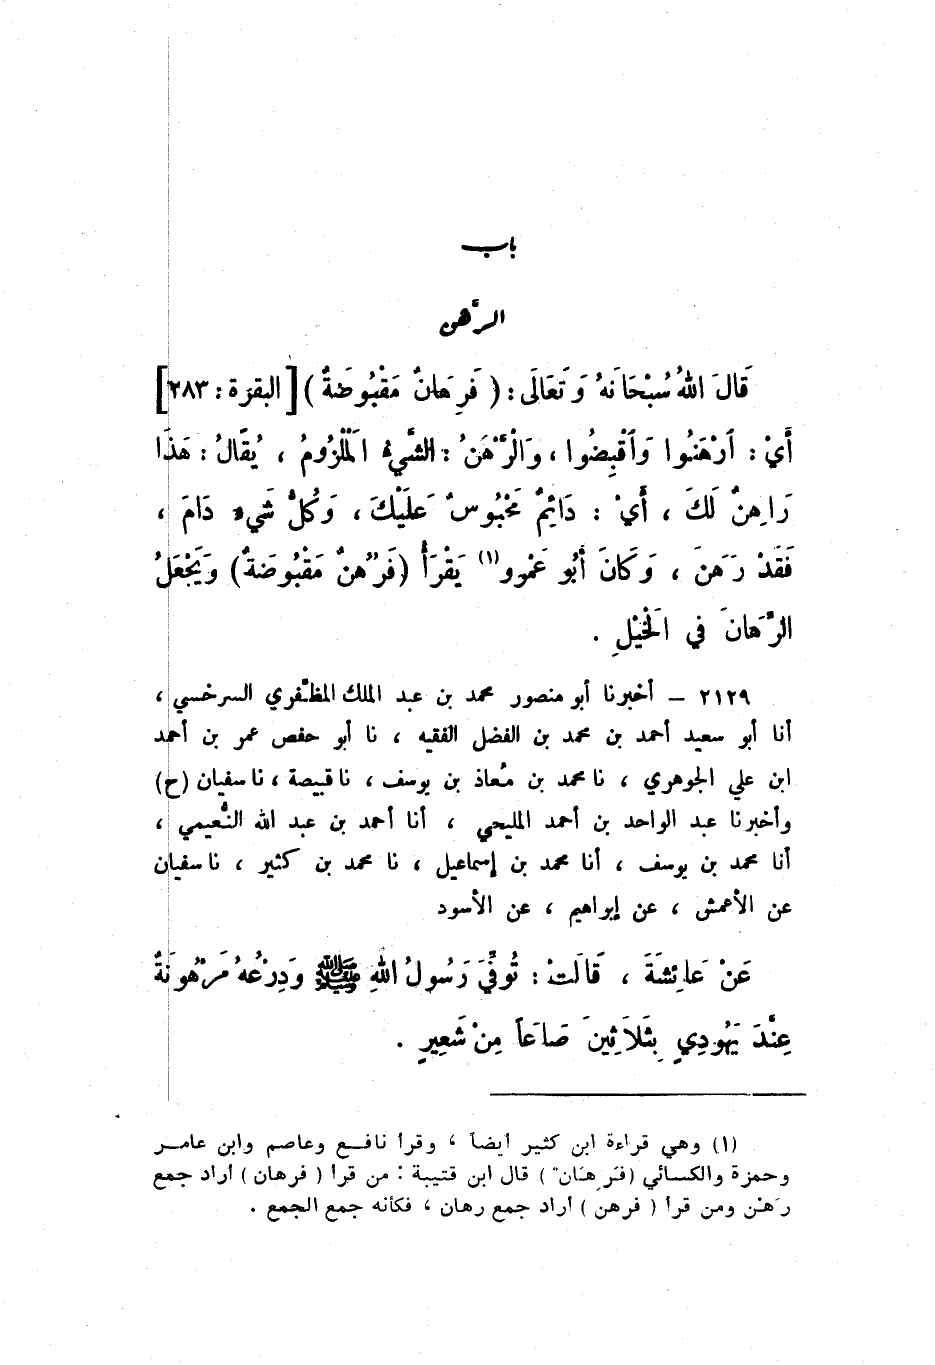 باب
الرَّهن
قَالَ اللهُ سُبْحَانَهُ وَتَعَالَى : ( فَرِهَانٌ مَقْبُوضَةٌ ) [ البقرة : ٢٨٣ ]
أَيْ : ارْهَنُوا وَاقْبِضُوا ، وَالْرَّهْنُ : الشَّيْءُ الْمَلْزُومُ ، يُقَالُ : هَذَا
رَاهِنٌ لَكَ ، أَيْ : دَائِمٌ مَحْبُوسٌ عَلَيْكَ ، وَكُلُّ شَيْءٍ دَامَ ،
فَقَدْ رَهَنَ ، وَكَانَ أَبُو عَمْروٍ (١) يَقْرَأُ ( فَرُهُنٌ مَقْبُوضَةٌ ) وَيَجْعَلُ
الرِّهَانَ في الْخَيْلِ .
٢١٢٩ – أخبرنا أبو منصور محمد بن عبد الملك المظفّري السرخسي ،
أنا أبو سعيد أحمد بن محمد بن الفضل الفقيه ، نا أبو حفص عمر بن أحمد
ابن علي الجوهري ، نا محمد بن مُعاذ بن يوسف ، نا قبيصة ، نا سفيان (ح)
وأخبرنا عبد الواحد بن أحمد المليحي ، أنا أحمد بن عبد الله النُّعيمي ،
أنا محمد بن يوسف ، أنا محمد بن إسماعيل ، نا محمد بن كثير ، نا سفيان
عن الأعمش ، عن إبراهيم ، عن الأسود
عَنْ عَائِشَةَ ، قَالَتْ : تُوُفِّيَ رَسُولُ اللهِ ﷺ وَدِرْعُهُ مَرْهُونَةٌ
عِنْدَ يَهُودِيٍ بِثَلَاثِينَ صَاعَاً مِنْ شَعِيرٍ .
(١) وهي قراءة ابن كثير أيضاً ، وقرأ نافع وعاصم وابن عامر
وحمزة والكسائي (فَرِهَان") قال ابن قتيبة : من قرأ ( فرهان ) أراد جمع
رَهْن ومن قرأ ( فرهن ) أراد جمع رهان ، فكأنه جمع الجمع .